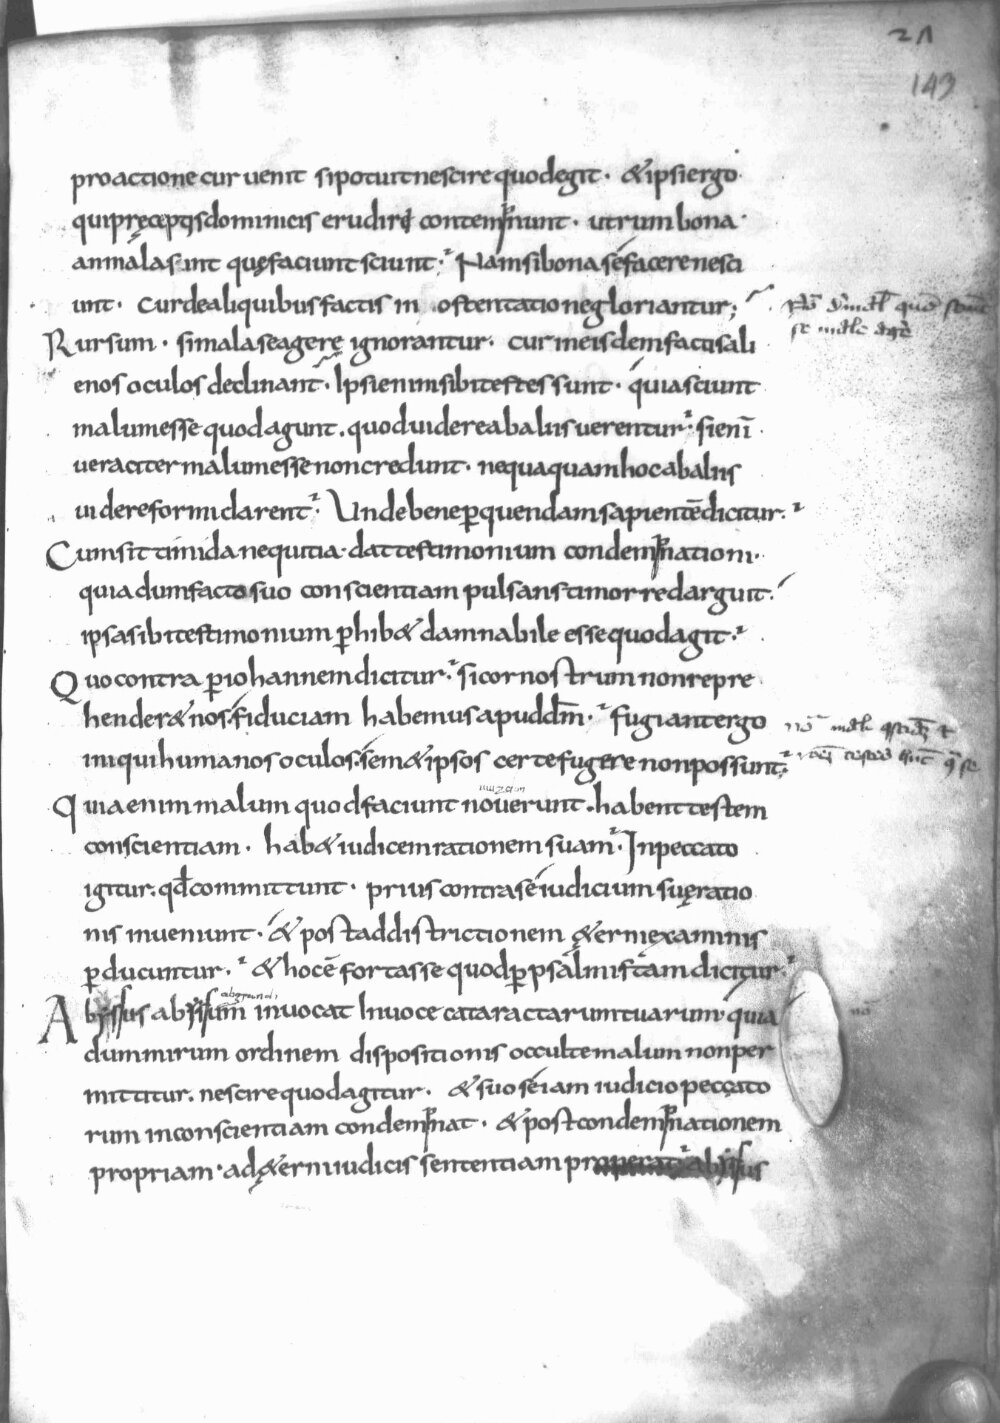 143
pro actione cur uenit si potuit nescire quod egit · & ipsi ergo ·
qui pręceptis dominicis erudiri contempnunt · utrum bona ·
an mala sint quę faciunt sciunt · Nam si bona sé facere nesci
unt · cur de aliquibus factis in ostentatione gloriantur;
Rursum · si mala se agere ignorantur · cur in eisdem factis ali
enos oculos declinant · Ipsi enim sibi testes sunt · quia sciunt
malum esse quod agunt . quod uidere ab aliis uerentur · si enī
ueraciter malum esse non credunt · nequaquam hoc ab aliis
uidere formidarent · Unde bene ꝑ quendam sapientē dicitur ·
Cum sit timida nequitia · dat testimonium condempnationi ·
quia dum facto suo conscientiam pulsans timor redarguit ·
ipsa sibi testimonium ꝑhib& damnabile esse quod agit ·
Quo contra ꝑ iohannem dicitur · si cor nostrum non repre
hender& nos · fiduciam habemus apud dm̄ · fugiant ergo
iniqui humanos oculos · sem& ipsos certe fugere non possunt ·
Quia enim malum quod faciunt nouerunt . habent testem
conscientiam · hab& iudicem rationem suam · In peccato
igitur . qđ committunt · prius contra sé iudicium suę ratio
nis inueniunt · & post ad districtionem &erni examinis
ꝑducuntur · & hoc ē fortasse quod ꝑ psalmistam dicitur ·
abgrundi
Abyssus abyssum inuocat In uoce cataractarum tuarum · quia
dum mirum ordinem dispositionis occulte malum non per
mittitur . nescire quod agitur · & suo se iam iudicio peccato
rum in conscientiam condempnat · & post condempnationem
propriam · ad &erni iudicis sententiam properat · abyssus